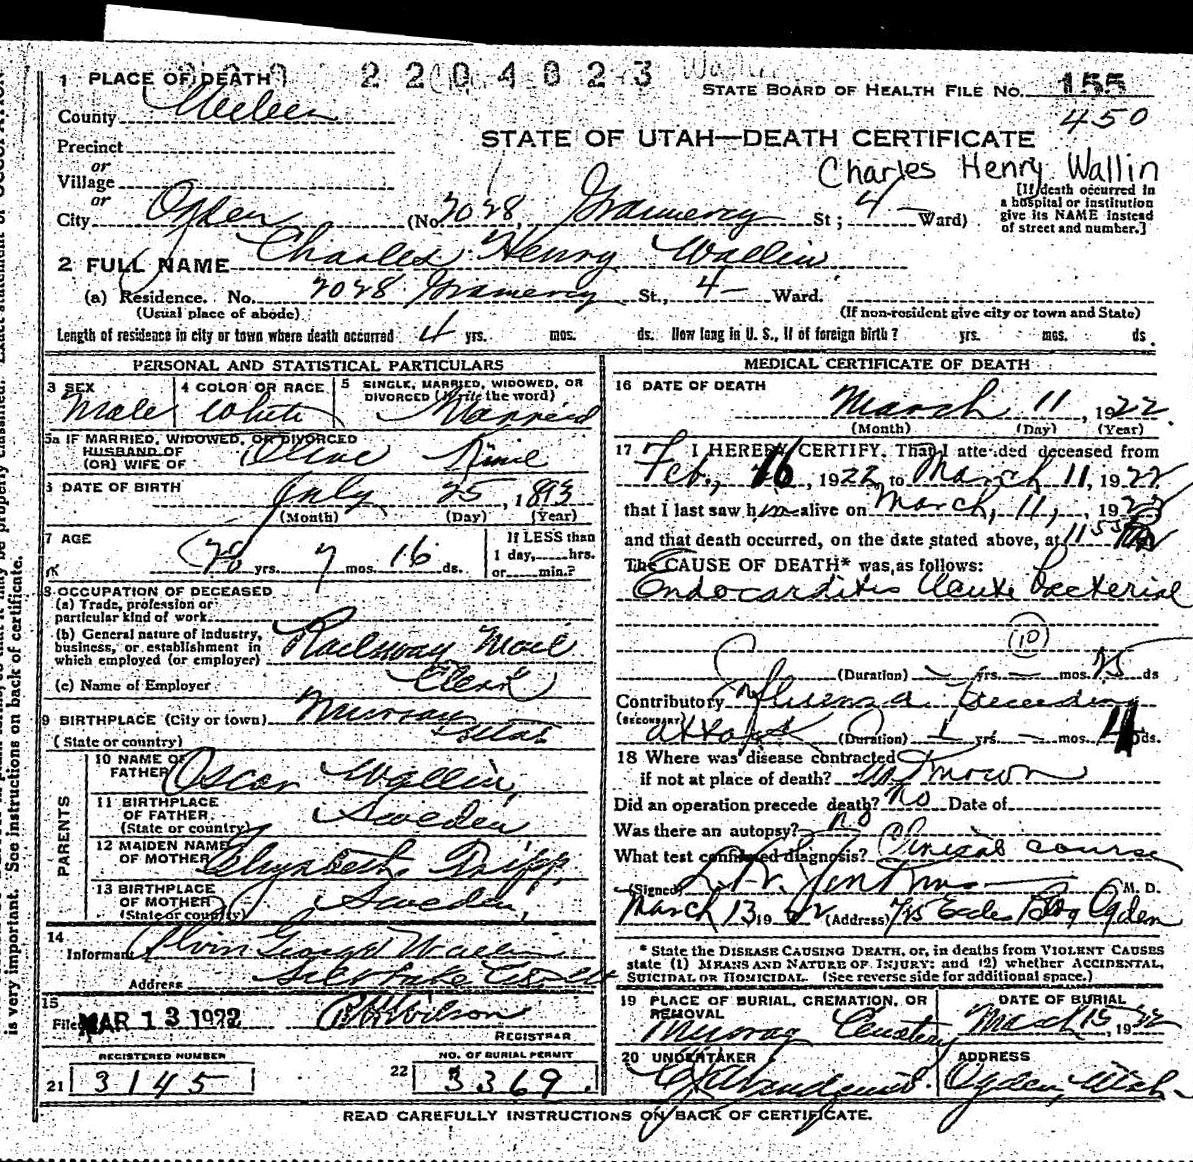 1 PLACE OF DEATH 2204023
STATE BOARD OF HEALTH FILE NO. 155
County 450
STATE OF UTAH—DEATH CERTIFICATE
Precinct
or
Village
Charles Henry Wallin
[If death occurred in a hospital or institution give its NAME instead of street and number.]
or
City Ogden (No. 2028, Gramercy St; 4 Ward)
2 FULL NAME Charles Henry Wallin
(a) Residence. No. 2028 Gramercy St., 4 Ward.
(Usual place of abode) (If non-resident give city or town and State)
Length of residence in city or town where death occurred 4 yrs. mos. ds. How long in U. S., if of foreign birth? yrs. mos. ds.
PERSONAL AND STATISTICAL PARTICULARS
3 SEX Male
4 COLOR OR RACE White
5 SINGLE, MARRIED, WIDOWED, OR DIVORCED (Write the word) Married
5a IF MARRIED, WIDOWED, OR DIVORCED
HUSBAND OF
(OR) WIFE OF Olive
6 DATE OF BIRTH July 25, 1893
(Month) (Day) (Year)
7 AGE 28 yrs. 7 mos. 16 ds.
If LESS than 1 day, hrs. or min.?
8 OCCUPATION OF DECEASED
(a) Trade, profession or particular kind of work
(b) General nature of industry, business, or establishment in which employed (or employer) Railway Mail Clerk
(c) Name of Employer
9 BIRTHPLACE (City or town) Murray
(State or country) Utah
PARENTS
10 NAME OF FATHER Oscar Wallin
11 BIRTHPLACE OF FATHER (State or country) Sweden
12 MAIDEN NAME OF MOTHER
13 BIRTHPLACE OF MOTHER (State or country) Sweden
14
Informant Wallin
Address Salt Lake
15
Filed MAR 13 1922 Wilson
REGISTRAR
REGISTERED NUMBER
21 3145
NO. OF BURIAL PERMIT
22 3369
MEDICAL CERTIFICATE OF DEATH
16 DATE OF DEATH
March 11, 1922
(Month) (Day) (Year)
17 I HEREBY CERTIFY, That I attended deceased from
Feb., 16, 1922, to March 11, 1922
that I last saw him alive on March, 11, 1922
and that death occurred, on the date stated above, at 1155
The CAUSE OF DEATH* was as follows:
Endocarditis Acute bacterial
(10)
(Duration) yrs. mos. 25 ds
Contributory Influenza
(SECONDARY) attack (Duration) yrs. mos. 4 ds.
18 Where was disease contracted
if not at place of death? Unknown
Did an operation precede death? No Date of
Was there an autopsy? no
What test confirmed diagnosis? Clinical course
(Signed) M. D.
March 13 1922 (Address) Eccles Bldg Ogden
* State the DISEASE CAUSING DEATH, or, in deaths from VIOLENT CAUSES state (1) MEANS AND NATURE OF INJURY; and (2) whether ACCIDENTAL, SUICIDAL OR HOMICIDAL. (See reverse side for additional space.)
19 PLACE OF BURIAL, CREMATION, OR REMOVAL Murray Cemetery
DATE OF BURIAL March 15, 1922
20 UNDERTAKER
ADDRESS Ogden, Utah
READ CAREFULLY INSTRUCTIONS ON BACK OF CERTIFICATE.
is very important. See instructions on back of certificate.